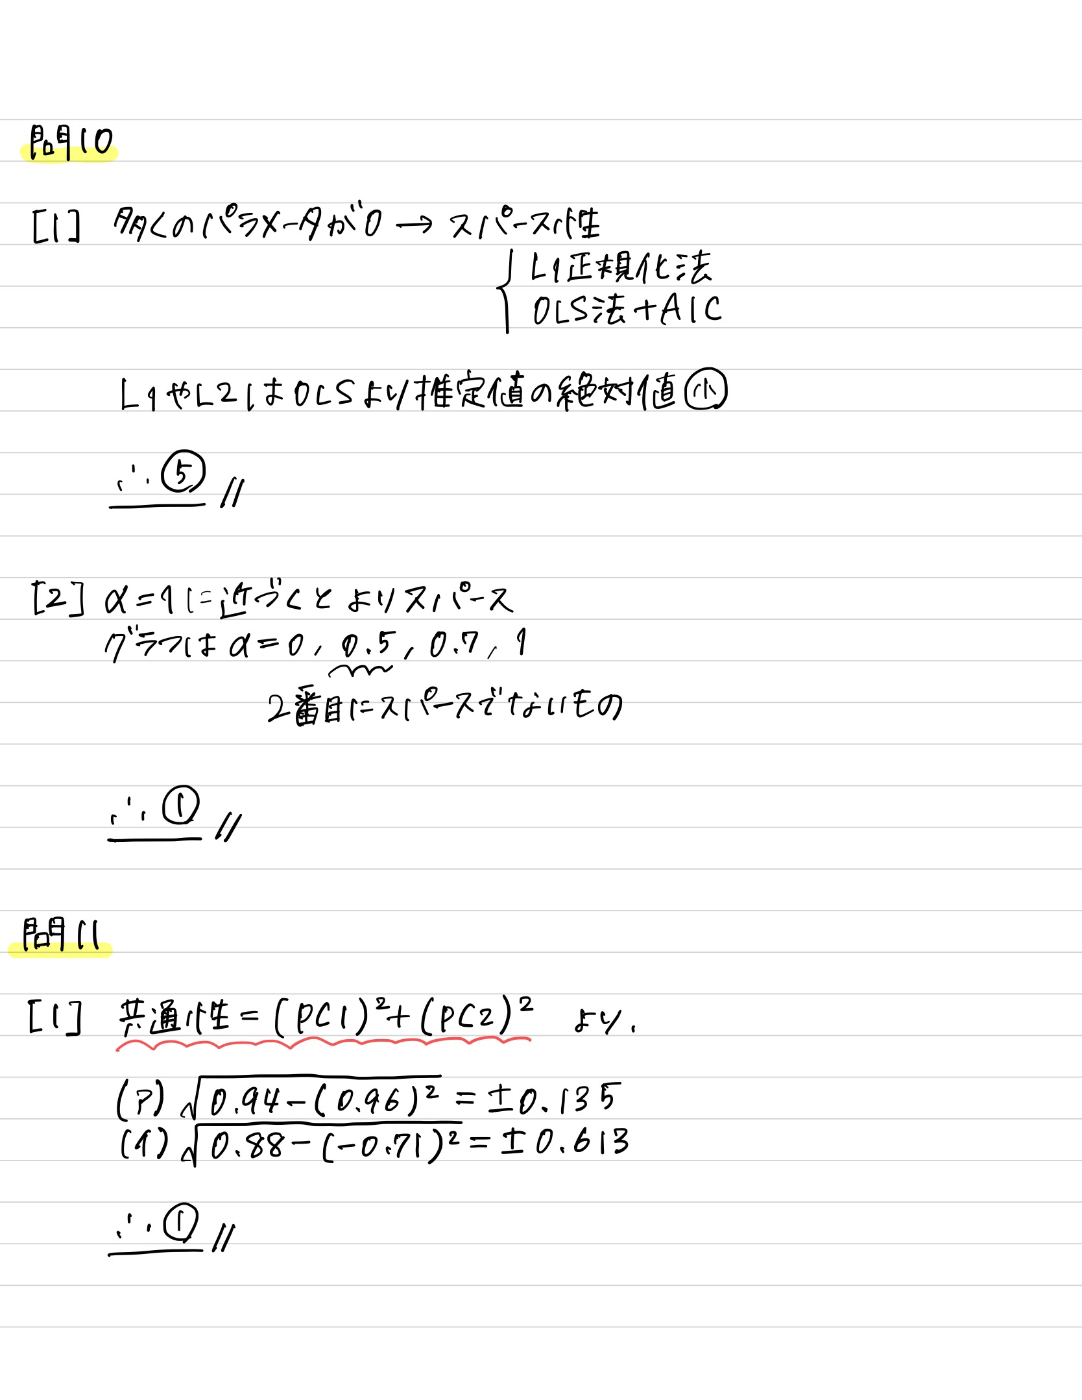 問10
[1] 多くのパラメータが0 → スパース性
L1正規化法
OLS法+AIC
L1やL2はOLSより推定値の絶対値㊙小
∴ ⑤ //
[2] α=1に近づくとよりスパース
グラフはα=0, 0.5, 0.7, 1
2番目にスパースでないもの
∴ ① //
問11
[1] 共通性=(PC1)²+(PC2)² より、
(ア) √0.94-(0.96)² = ±0.135
(イ) √0.88-(-0.71)² = ±0.613
∴ ① //